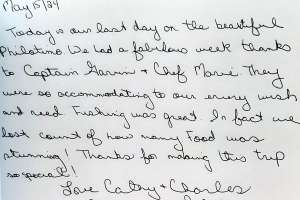 May 5/24
Today is our last day on the beautiful
Philotimo We had a fabulous week thanks
to Captain Gavin + Chef Marie. They
were so accommodating to our every wish
and need. Fishing was great. In fact we
lost count of how many Food was
stunning! Thanks for making this trip
so special!
Love Cathy + Charles